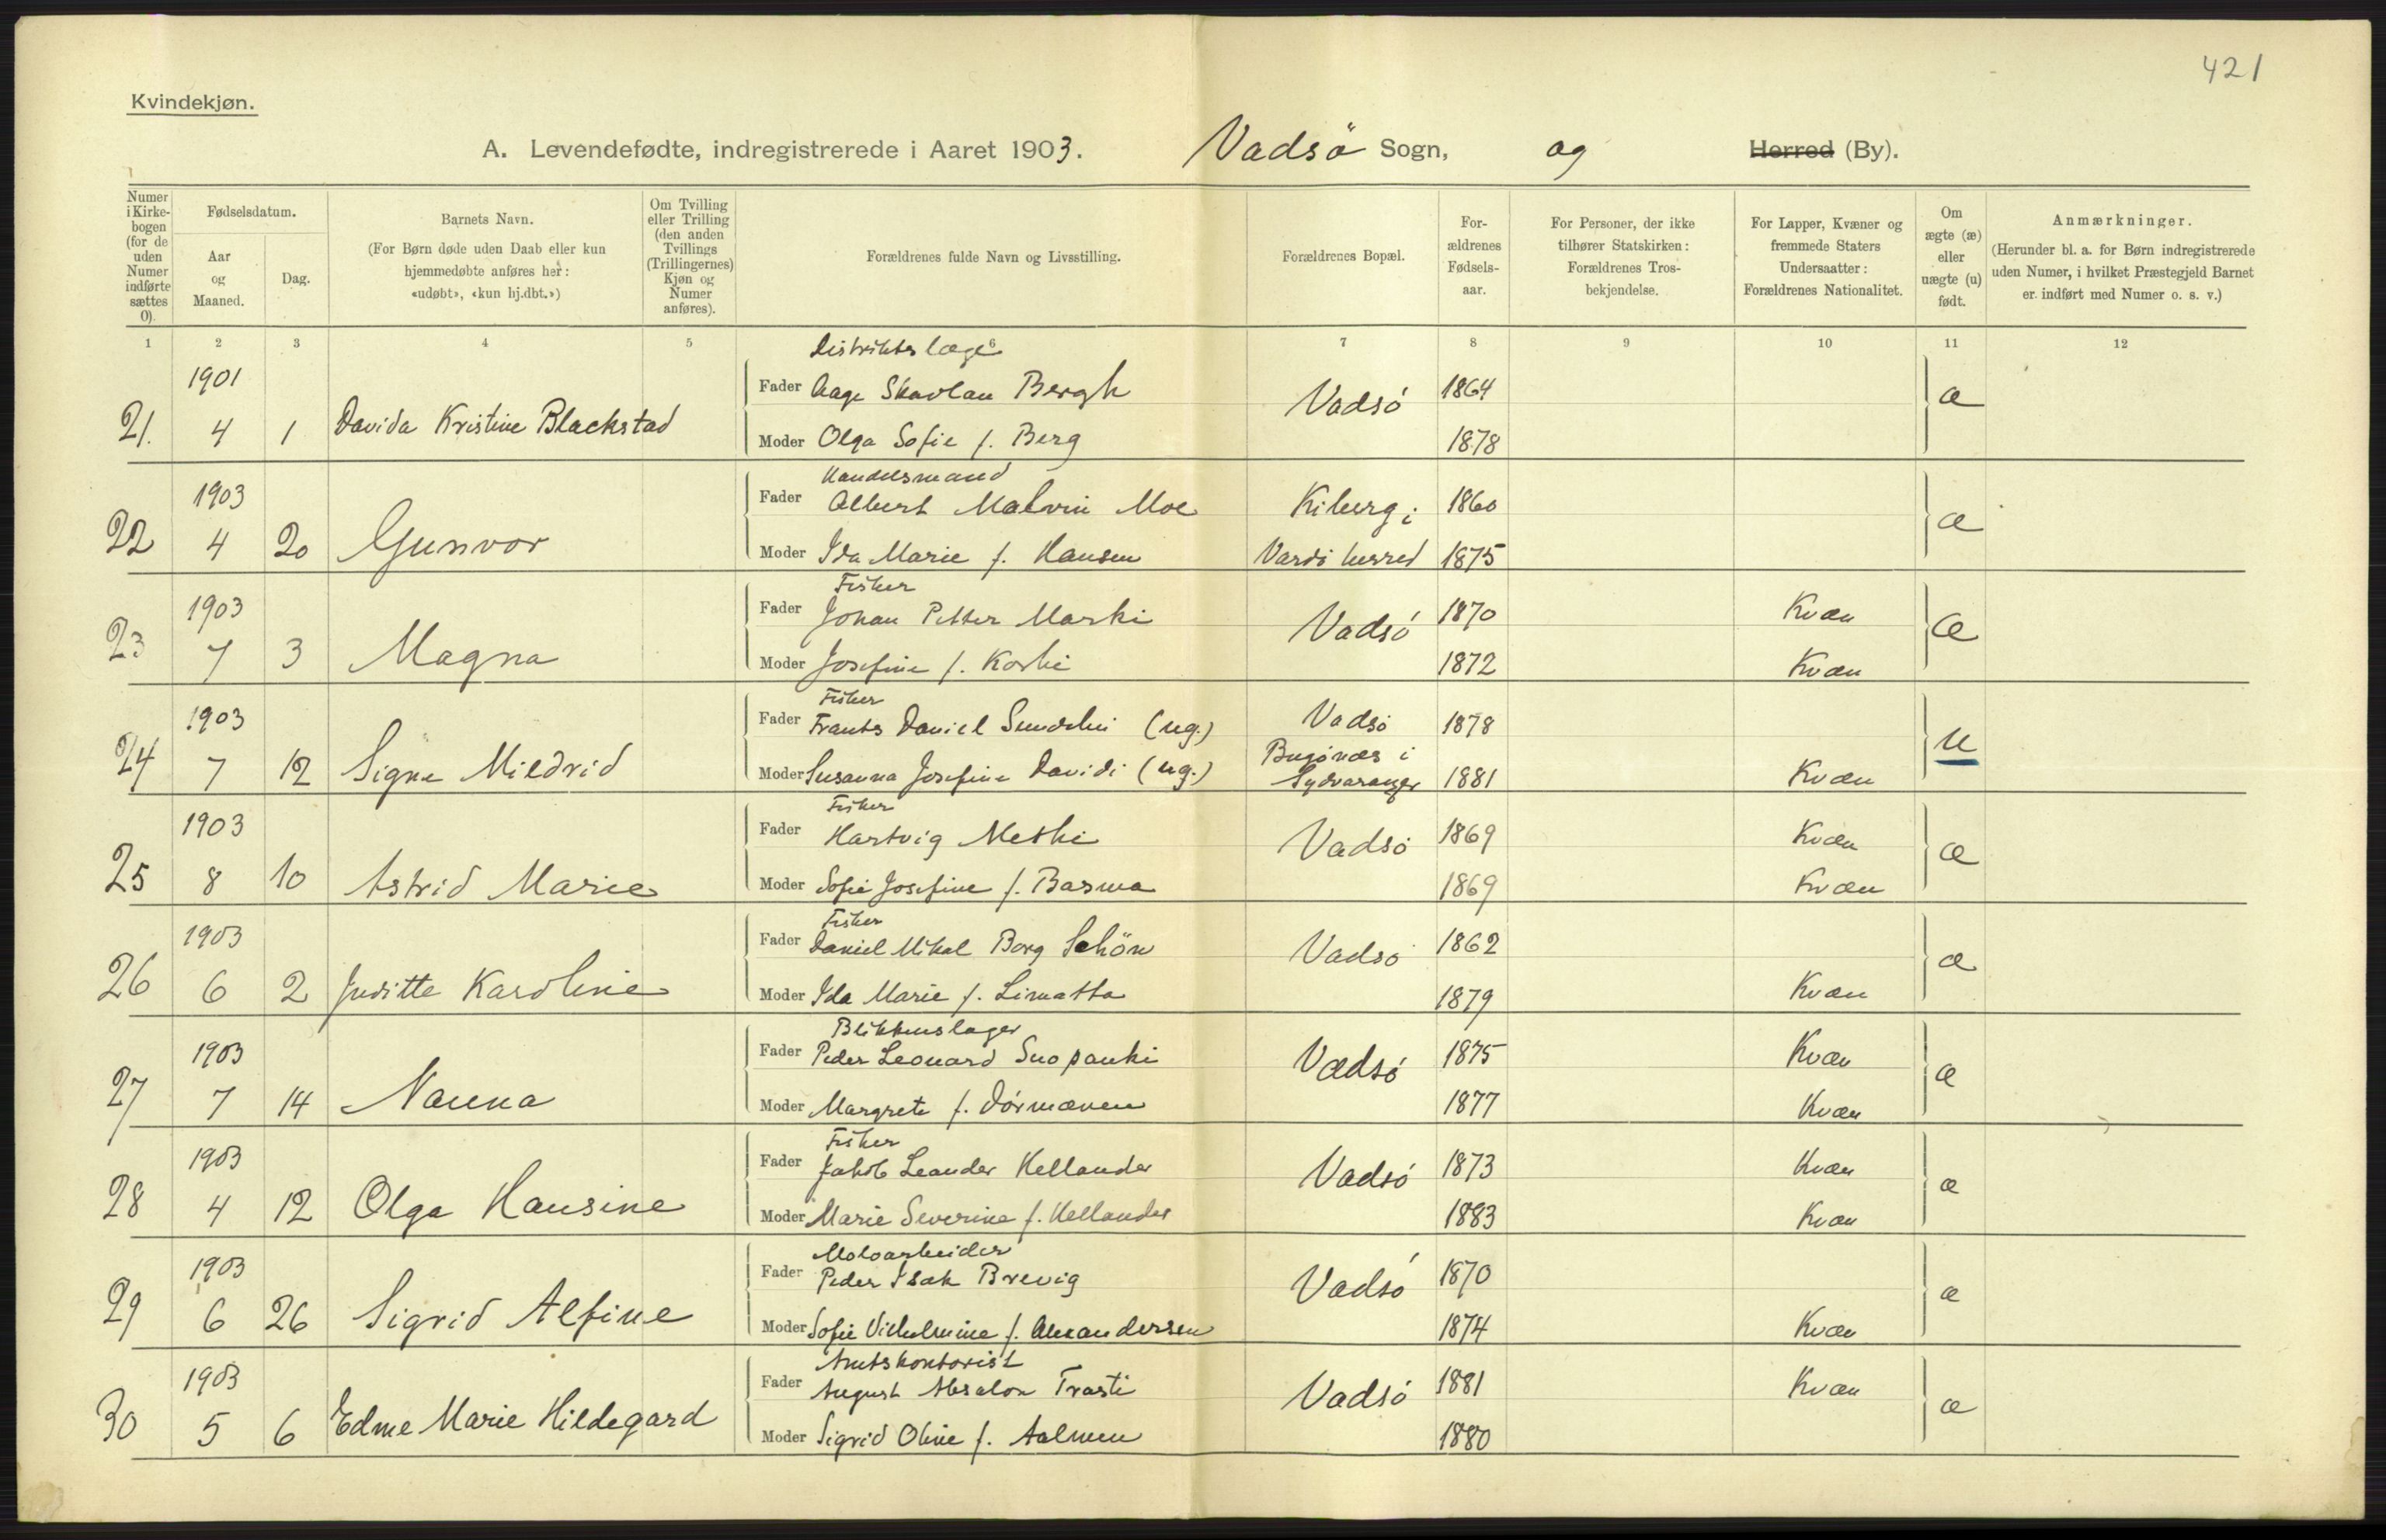 421
Kvindekjøn.
A. Levendefødte, indregistrerede i Aaret 1903. Vadsö Sogn, og Herred (By).
Numer i Kirkebogen (for de uden Numer indførte sættes 0).
Fødselsdatum.
Aar og Maaned.
Dag.
Barnets Navn.
(For Børn døde uden Daab eller kun hjemmedøbte anføres her: «udøbt», «kun hj.dbt.»)
Om Tvilling eller Trilling (den anden Tvillings (Trillingernes) Kjøn og Numer anføres).
Forældrenes fulde Navn og Livsstilling.
Forældrenes Bopæl.
Forældrenes Fødselsaar.
For Personer, der ikke tilhører Statskirken: Forældrenes Trosbekjendelse.
For Lapper, Kvæner og fremmede Staters Undersaatter: Forældrenes Nationalitet.
Om ægte (æ) eller uægte (u) født.
Anmærkninger.
(Herunder bl. a. for Børn indregistrerede uden Numer, i hvilket Præstegjeld Barnet er indført med Numer o. s. v.)
1 2 3 4 5 6 7 8 9 10 11 12
Distriktslæge
1901 Fader Aage Skavlan Bergh Vadsö 1864 æ
21. 4 1 Davida Kristine Blackstad Moder Olga Sofie f. Berg 1878
Handelsmand
1903 Fader Albert Malvin Moe Kiberg i 1860 æ
22 4 20 Gunvor Moder Ida Marie f. Hansen Vardö herred 1875
Fisker
1903 Fader Johan Petter Marki Vadsö 1870 Kvæn æ
23 7 3 Magna Moder Josefine f. Koski 1872 Kvæn
Fisker
1903 Fader Frants Daniel Sundelin (ug.) Vadsö 1878 u
24 7 12 Signe Mildrid Moder Susanna Josefine Davidi (ug.) Bugönæs i Sydvaranger 1881 Kvæn
Fisker
1903 Fader Hartvig Methi Vadsö 1869 Kvæn æ
25 8 10 Astrid Marie Moder Sofie Josefine f. Basma 1869 Kvæn
Fisker
1903 Fader Daniel Mikal Borg Schön Vadsö 1862 æ
26 6 2 Juditte Karoline Moder Ida Marie f. Limatta 1879 Kvæn
Blikkenslager
1903 Fader Peder Leonard Suopanki Vadsö 1875 Kvæn æ
27 7 14 Nanna Moder Margrete f. Dörmænen 1877 Kvæn
Fisker
1903 Fader Jakob Leander Hellander Vadsö 1873 Kvæn æ
28 4 12 Olga Hansine Moder Marie Severine f. Hellander 1883 Kvæn
Moloarbeider
1903 Fader Peder Isak Brevig Vadsö 1870 æ
29 6 26 Sigrid Alfine Moder Sofie Vilhelmine f. Alexandersen 1874 Kvæn
Amtskontorist
1903 Fader August Absalon Trasti Vadsö 1881 Kvæn æ
30 5 6 Edme Marie Hildegard Moder Sigrid Oline f. Aalmen 1880